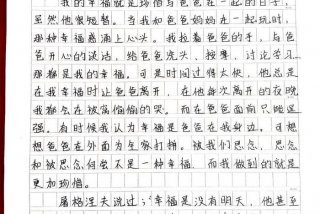 我的幸福就是珍惜与爸爸在一起的日子，
虽然他很短暂。当我和爸爸妈妈在一起玩时，
那种幸福感涌上心头。我拉着爸爸的手，与爸
爸开心的谈话，给爸爸洗头，按摩，讨论学习
都是我的幸福。可是时间过得快，他总是
在我幸福时让爸爸离开，在他每次离开的夜晚
我都会在被窝偷偷的哭。而在爸爸面前只能逞
强。有时候我认为幸福是爸爸在我身边。可想
想爸爸在外面为全家打拼。被我们思念，思念
和被思念何尝不是一种幸福，而我做到的就是
更加珍惜。
屠格涅夫说过：幸福是没有明天，他甚至